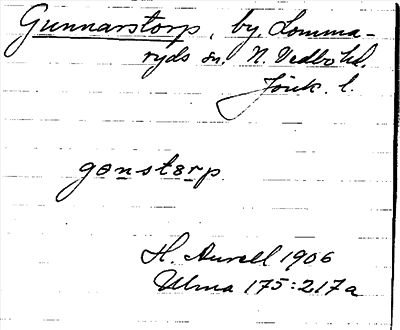 Gunnarstorp, by, Lomma-
ryds sn. N. Vedbo hd.
Jönk. l.
gɵnstɵrp
H. Aurell 1906
Ulma 175:217a